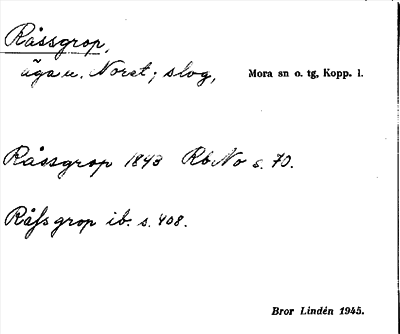 Råssgrop,
äga u. Noret; slog, Mora sn o. tg, Kopp. l.
Råssgrop 1843 RbNo s. 70.
Råfsgrop ib. s. 408.
Bror Lindén 1945.